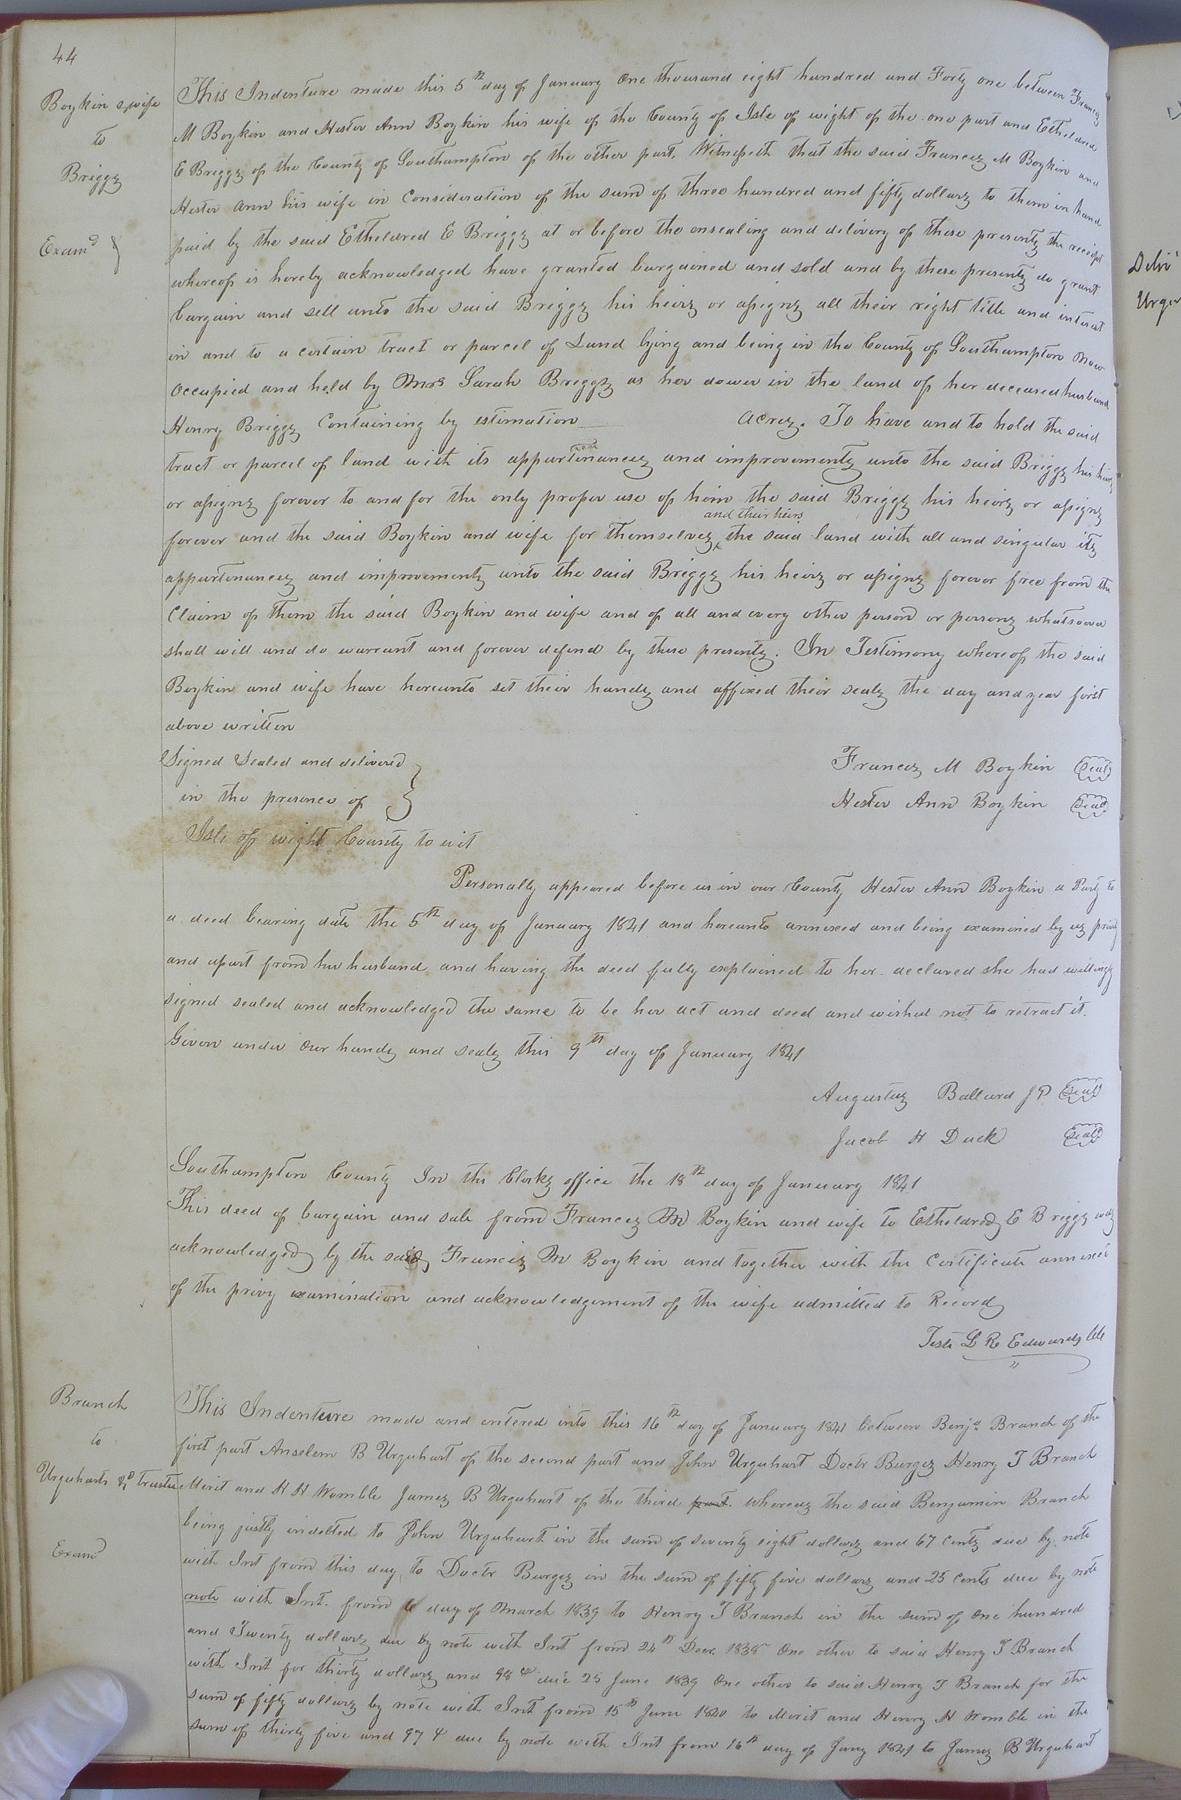 44
Boykin & wife
to
Briggs
Examd
This Indenture made this 5th day of January One thousand eight hundred and Forty one between Francis
M Boykin and Hester Ann Boykin his wife of the County of Isle of wight of the one part and Etheldred
E Briggs of the County of Southampton of the other part, Witnesseth that the said Francis M Boykin and
Hester Ann his wife in Consideration of the sum of three hundred and fifty dollars to them in hand
paid by the said Etheldred E Briggs at or before the ensealing and delivery of these presents the receipt
whereof is hereby acknowledged have granted bargained and sold and by these presents do grant
bargain and sell unto the said Briggs his heirs or assigns all their right title and interest
in and to a certain tract or parcel of Land lying and being in the County of Southampton now
occupied and held by Mrs Sarah Briggs as her dower in the land of her deceased husband
Henry Briggs Containing by estimation acres. To have and to hold the said
tract or parcel of land with its appurtenances and improvements unto the said Briggs his heirs
or assigns forever to and for the only proper use of him the said Briggs his heirs or assigns
forever and the said Boykin and wife for themselves and their heirs the said land with all and singular its
appurtenances and improvements unto the said Briggs his heirs or assigns forever free from the
Claim of them the said Boykin and wife and of all and every other person or persons whatsoever
shall will and do warrant and forever defend by these presents. In Testimony whereof the said
Boykin and wife have hereunto set their hands and affixed their seals the day and year first
above written
Signed Sealed and delivered
in the presence of
Francis M Boykin Seal
Hester Ann Boykin Seal
Isle of wight County to wit
Personally appeared before us in our County Hester Ann Boykin a Party to
a deed bearing date the 5th day of January 1841 and hereunto annexed and being examined by us privily
and apart from her husband and having the deed fully explained to her declared she had willingly
signed sealed and acknowledged the same to be her act and deed and wished not to retract it.
Given under Our hands and seals this 9th day of January 1841
Augustus Ballard JP Seal
Jacob H Duck Seal
Southampton County In the Clerks office the 18th day of January 1841
This deed of bargain and sale from Francis M Boykin and wife to Etheldred E Briggs was
acknowledged by the said Francis M Boykin and together with the Certificate annexed
of the privy examination and acknowledgement of the wife admitted to Record
Teste L R Edwards Clk
Branch
to
Urquharts &c Trustee
Examd
This Indenture made and entered into this 16th day of January 1841 between Benja Branch of the
first part Anselem B Urquhart of the second part and John Urquhart Doctr Burges Henry T Branch
Merit and H H Womble James B Urquhart of the third part. whereas the said Benjamin Branch
being justly indebted to John Urquhart in the sum of seventy eight dollars and 67 cents due by note
with Int from this day, to Doctr Burges in the sum of fifty five dollars and 25 cents due by note
note with Int. from day of March 1839 to Henry T Branch in the sum of One hundred
and Twenty dollars due by note with Int from 24th Decr. 1838 One other to said Henry T Branch
with Int for thirty dollars and 98 due 25 June 1839 One other to said Henry T Branch for the
sum of fifty dollars by note with Int from 15th June 1840 to Merit and Henry H Womble in the
sum of thirty five and 97 due by note with Int from 16th day of Jany 1841 to James B Urquhart